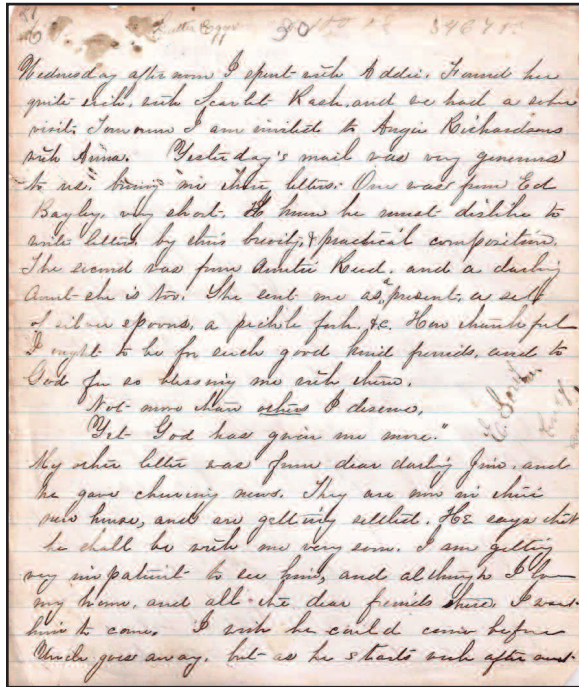 30
Wednesday afternoon I spent with Addie. Found her
quite sick, with Scarlet Rash, and we had a sober
visit. Tomorrow I am invited to Angie Richardsons
with Anna. Yesterday's mail was very generous
to us, bring me three letters. One was from Ed
Bayley, very short. I know he must dislike to
write letters by this brevity, & practical composition.
The second was from Auntie Reed, and a darling
Aunt she is too. She sent me as "present, a set
of silver spoons, a pickle fork, &c. How thankful
I ought to be for such good kind friends, and to
God for so blessing me with them.
Not more than others I deserve,
Yet God has given me more."
My other letter was from dear darling Jim, and
he gave cheering news. They are now in their
new house, and are getting settled. He says that
he shall be with me very soon. I am getting
very impatient to see him, and although I love
my home, and all the dear friends there I want
him to come. I wish he could come before
Uncle goes away, but as he starts week after next